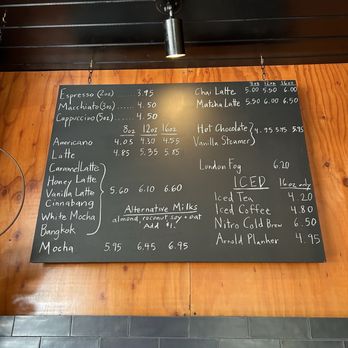 Espresso (2oz) ..... 3.95
Macchiato (3oz) ...... 4.50
Cappuccino (5oz) ..... 4.50
8oz 12oz 16oz
Americano 4.05 4.30 4.55
Latte 4.85 5.35 5.85
Caramel Latte
Honey Latte
Vanilla Latte
Cinnabang
White Mocha
Bangkok
5.60 6.10 6.60
Alternative Milks
almond, coconut, soy + oat
Add $1.
Mocha 5.95 6.45 6.95
8oz 12oz 16oz
Chai Latte 5.00 5.50 6.00
Matcha Latte 5.50 6.00 6.50
Hot Chocolate
Vanilla Steamer
4.95 5.45 5.95
London Fog 6.20
ICED 16oz only
Iced Tea 4.20
Iced Coffee 4.80
Nitro Cold Brew 6.50
Arnold Planker 4.95